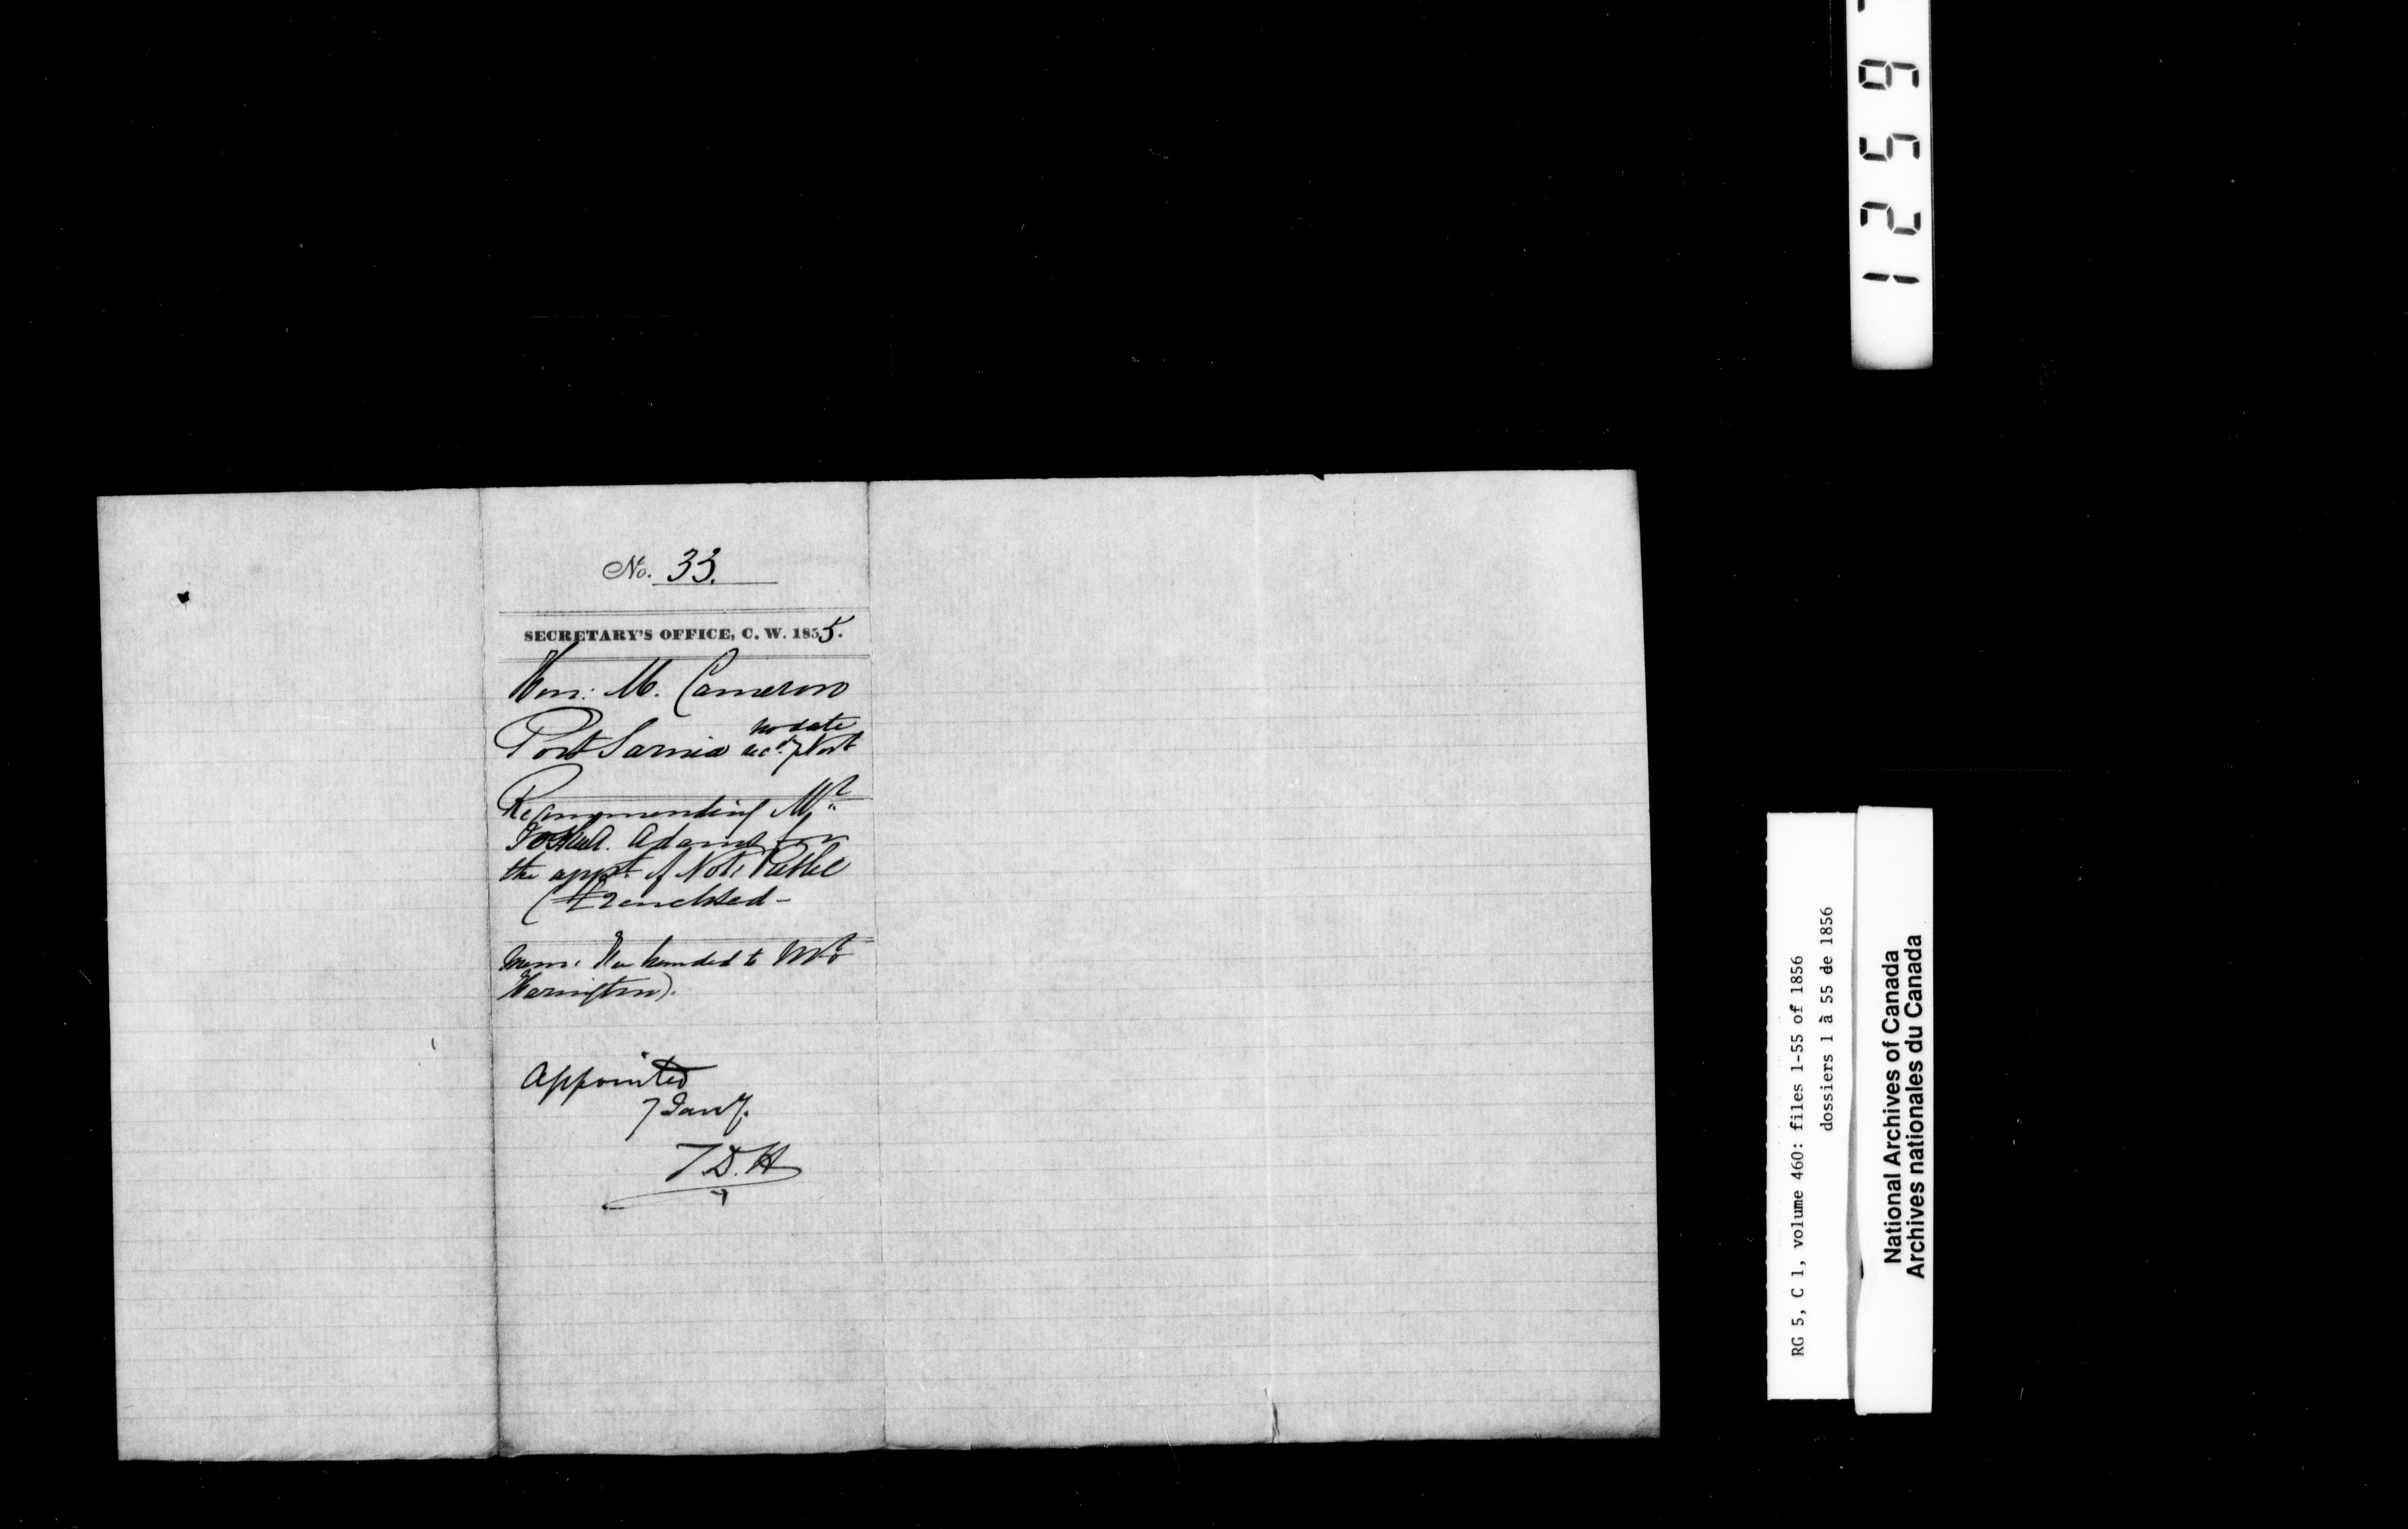 No. 33.
SECRETARY'S OFFICE, C. W. 1855.
Hon: M. Cameron
Port Sarnia
no date
Recommending Mr
Joshua Adams for
the appt. of Noty Public
(£2 enclosed -
Mem: handed to Mr
Harington).
Appointed
7 Jany.
T.D.H
1259
RG 5, C 1, volume 460: files 1-55 of 1856
dossiers 1 à 55 de 1856
National Archives of Canada
Archives nationales du Canada